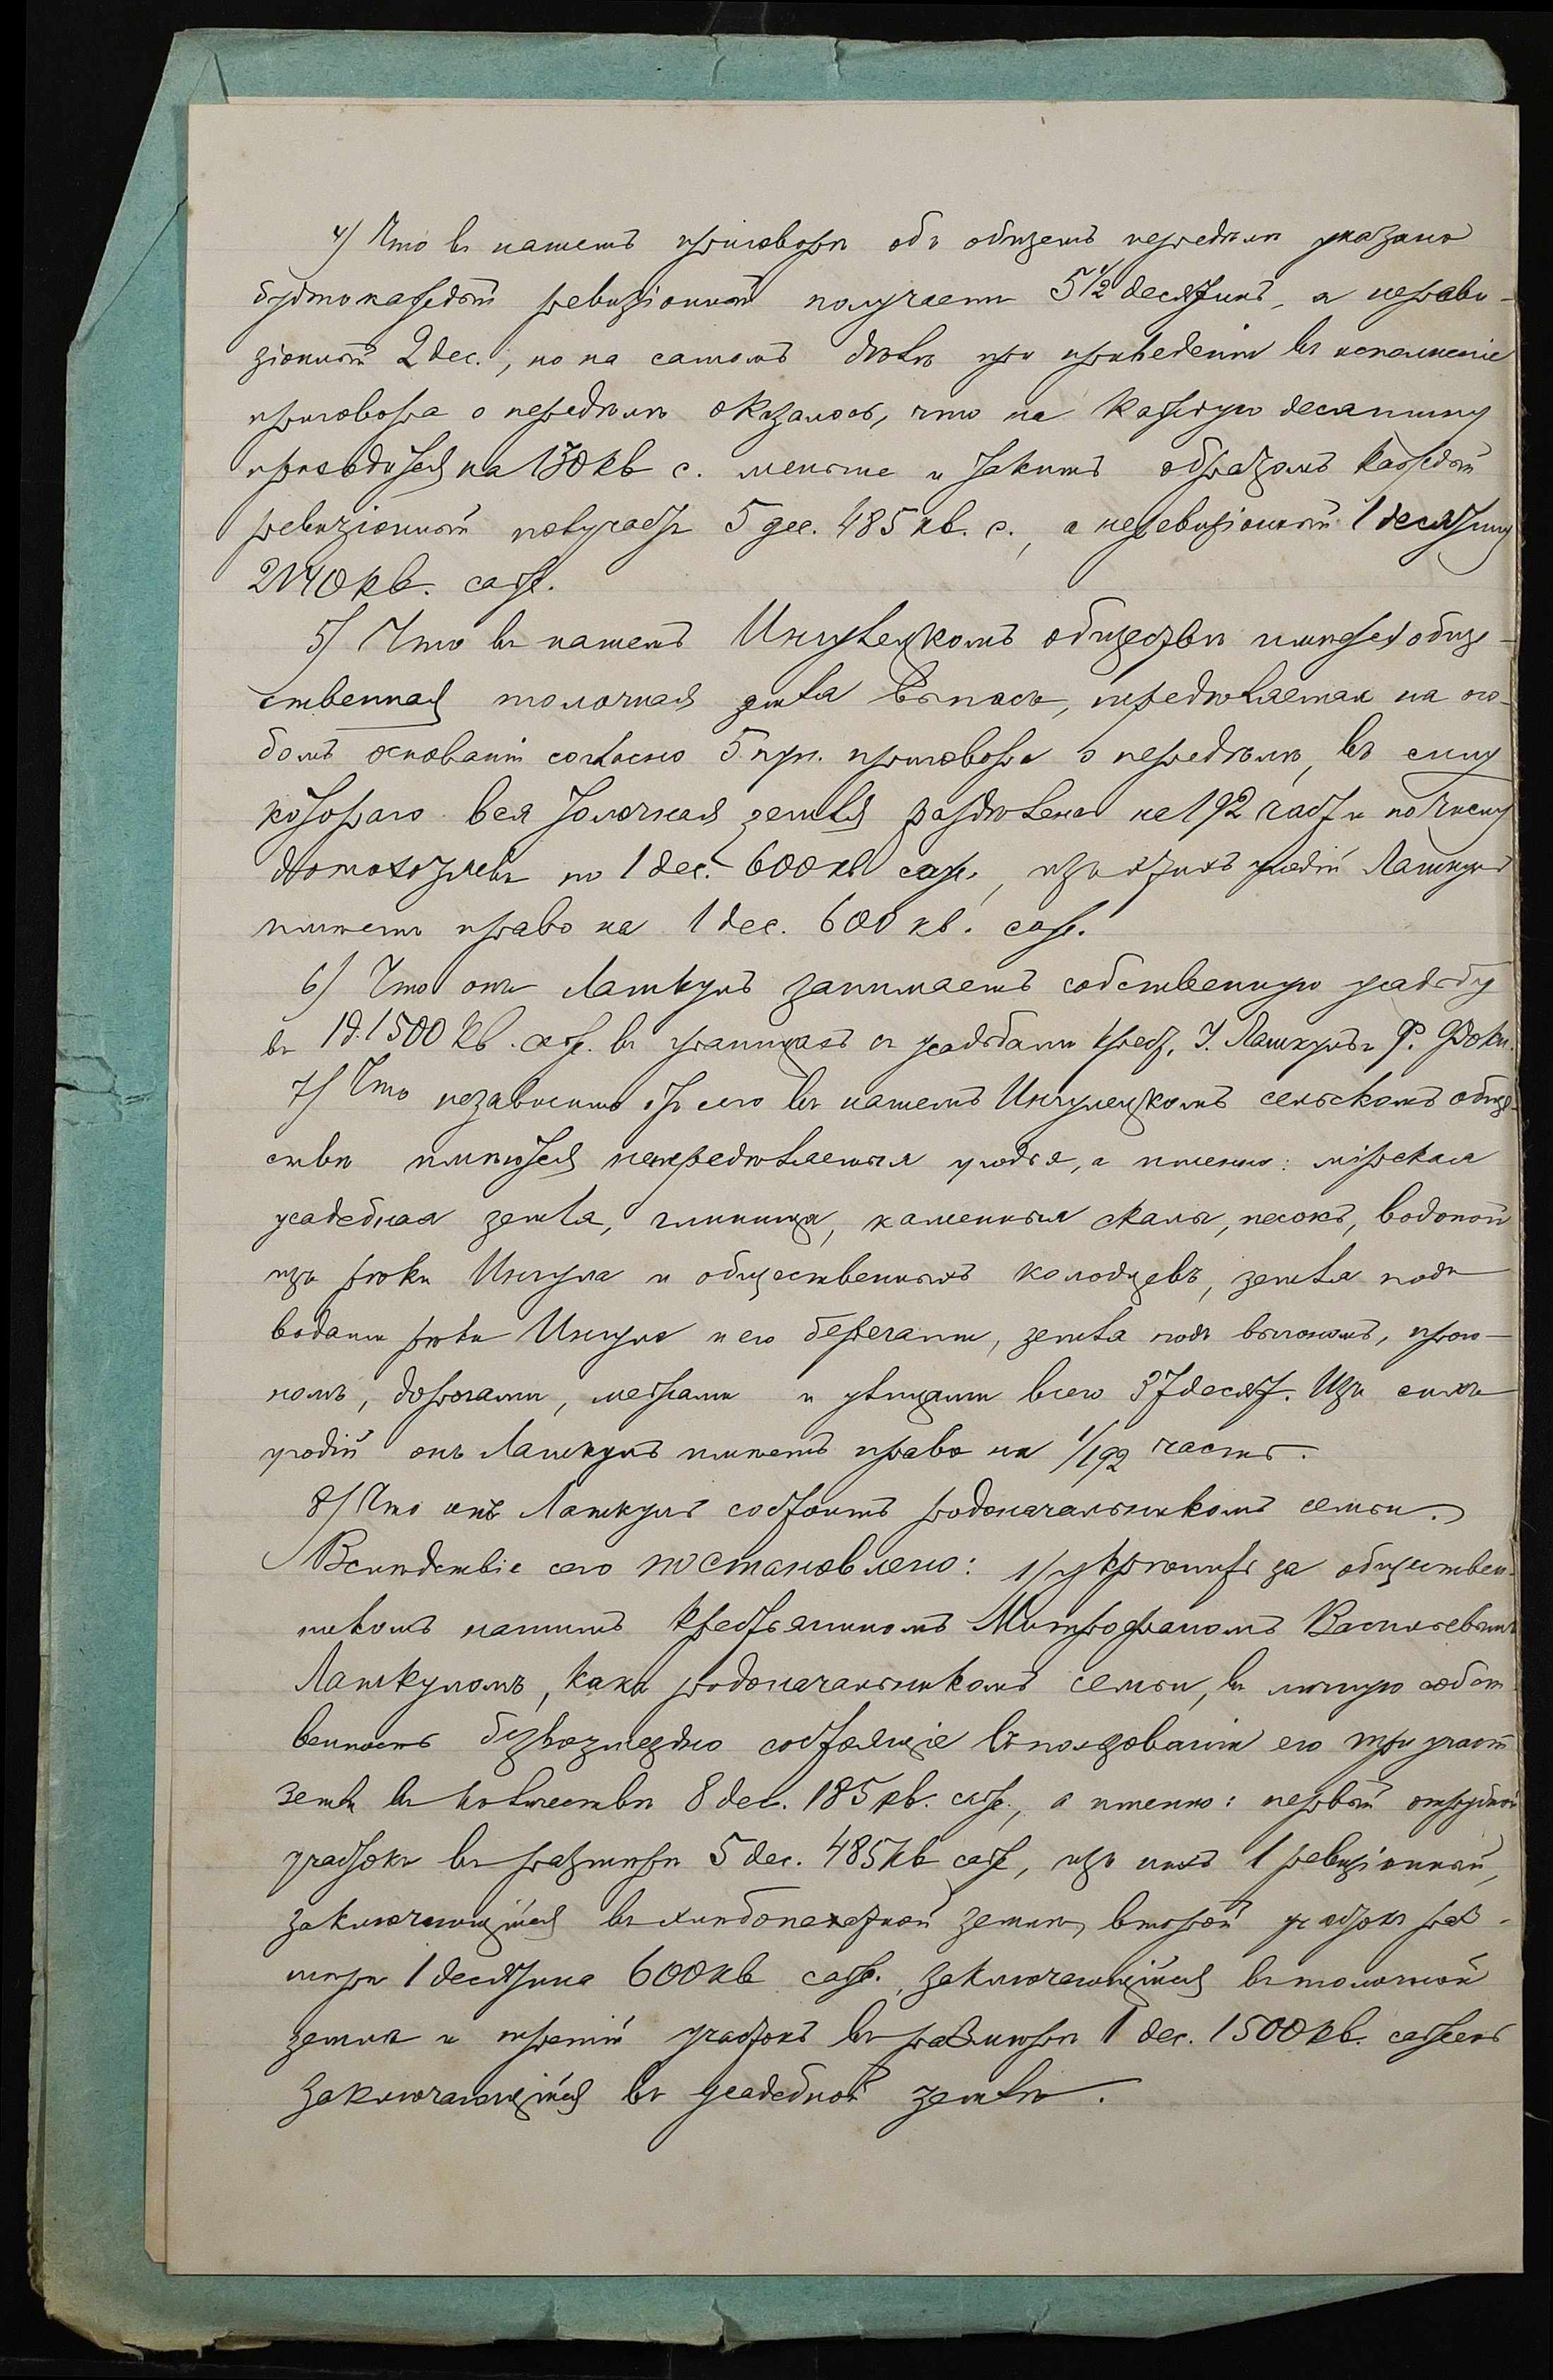 4) Что въ нашемъ приговорѣ объ общемъ передѣлѣ указано
будто каждый ревизіонный получаетъ 5 1/2 десятинъ, а нереви-
зіонный 2 дес., но на самомъ дѣлѣ при приведеніи въ исполненіе
приговора о передѣлѣ оказалось, что на каждую десятину
приходится на 130 кв с. меньше и такимъ образомъ каждый
ревизіонный получаетъ 5 дес. 485 кв. с., а неревизіонный 1 десятину
2140 кв. саж.
5) Что въ нашемъ Ингулецкомъ обществѣ имѣется обще-
ственная толочная земля выпасъ, передѣляемая на осо-
бомъ основаніи согласно 5 пун. приговора о передѣлѣ, въ силу
котораго вся толочная земля раздѣлена на 192 части по числу
домохозяевъ по 1 дес. 600 кв саж., изъ этихъ угодій Лашкулъ
имѣетъ право на 1 дес. 600 кв. саж.
6) Что онъ Лашкулъ занимаетъ собственную усадьбу
въ 1 д. 1500 кв. саж. въ границахъ съ усадьбами крест. І. Лашкулъ и Ф. Фоки.
7) Что независимо отъ сего въ нашемъ Ингулецкомъ сельскомъ обще-
ствѣ имѣются непередѣляемыя угодья, а именно: мірская
усадебная земля, глинища, каменныя скалы, песокъ, водопой
изъ рѣки Ингула и общественныхъ колодцевъ, земля подъ
водами рѣки Ингула и его берегами, земля подъ выгономъ, прого-
номъ, дорогами, межами и улицами всего 37 десят. Изъ сихъ
угодій онъ Лашкулъ имѣетъ право на 1/192 часть.
8) Что онъ Лашкулъ состоитъ родоначальникомъ семьи.
Вслѣдствіе сего постановлено: 1/ укрѣпить за обществен-
никомъ нашимъ крестьяниномъ Митрофаномъ Васильевымъ
Лашкуломъ, какъ родоначальникомъ семьи, въ личную собст-
венность безвозмездно состоящіе въ пользованіи его три участ.
земли въ количествѣ 8 дес. 185 кв. саж., а именно: первый отрубной
участокъ въ размѣрѣ 5 дес. 485 кв саж, изъ нихъ 1 ревизіонный,
заключающійся въ хлѣбопахатной землѣ, второй участокъ раз-
мѣра 1 десятина 600 кв саж., заключающійся въ толочной
землѣ и третій участокъ въ размѣрѣ 1 дес. 1500 кв. сажень
заключающійся въ усадебной землѣ.